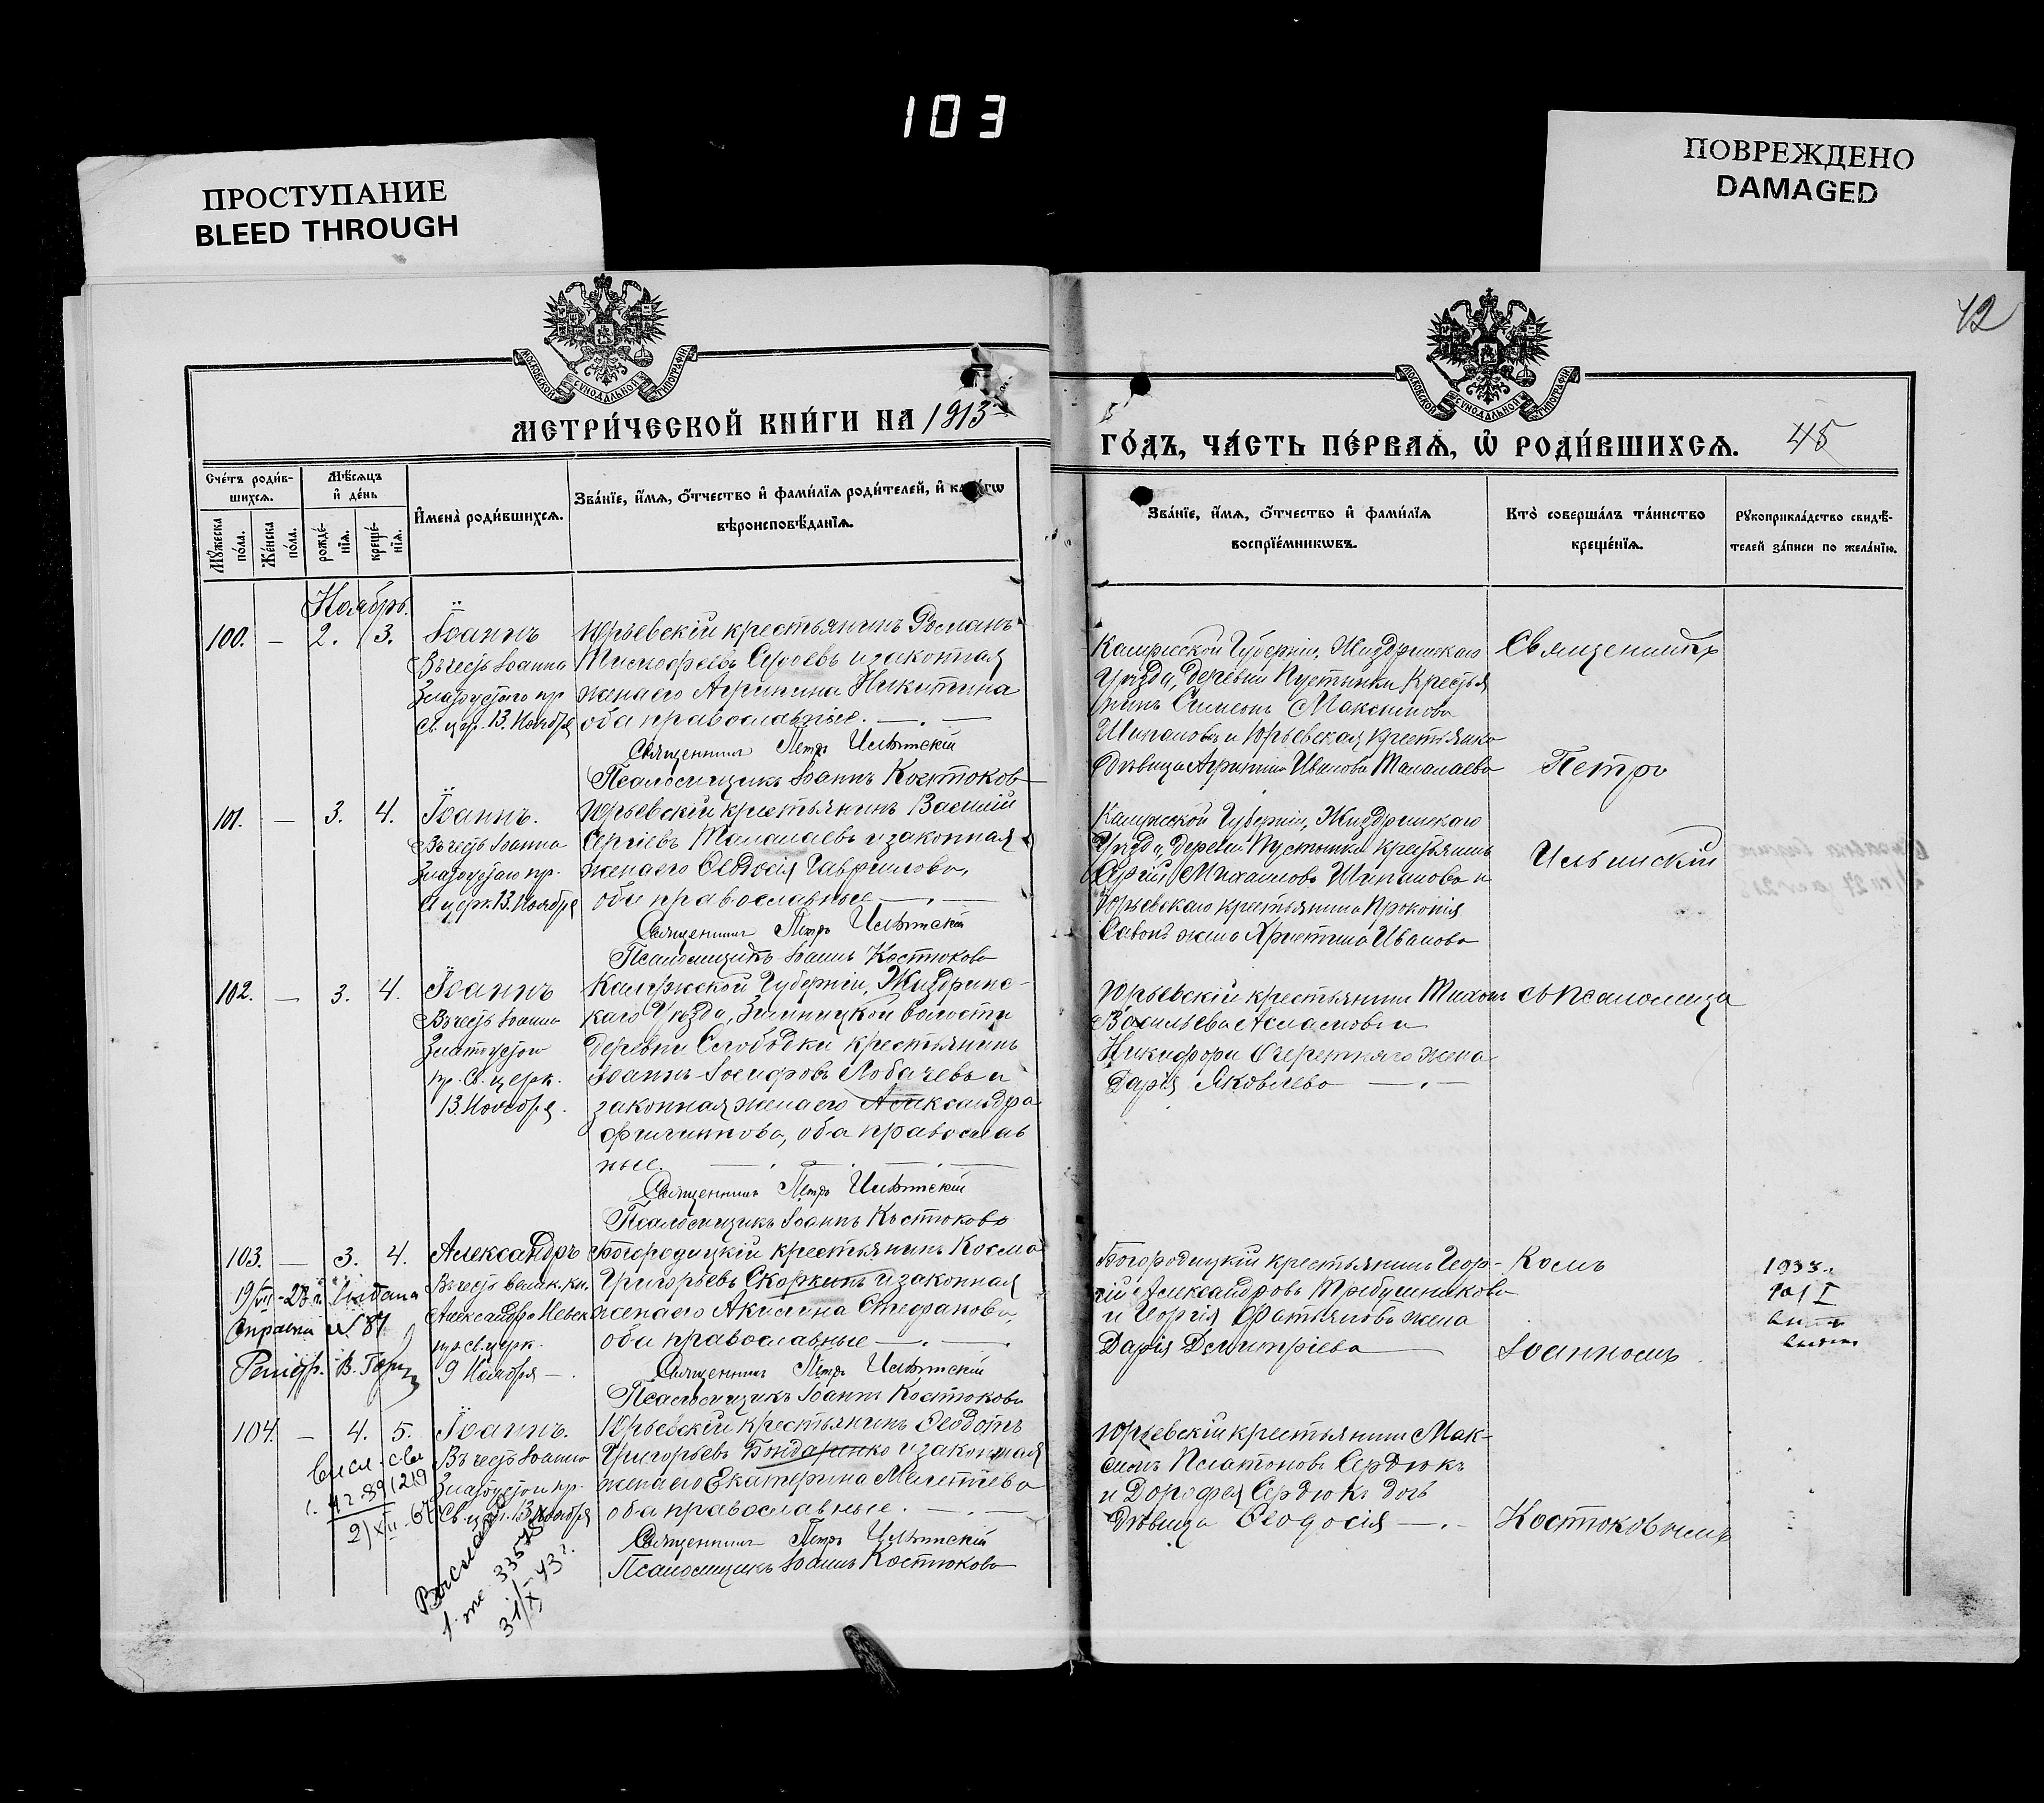 103
ПРОСТУПАНИЕ
BLEED THROUGH
ПОВРЕЖДЕНО
DAMAGED
42
МОСКОВСКОЙ СѴНОДАЛЬНОЙ ТИПОГРАФІИ
МОСКОВСКОЙ СѴНОДАЛЬНОЙ ТИПОГРАФІИ
МЕТРИ́ЧЕСКОЙ КНИ́ГИ НА 1913
ГО́ДЪ, ЧА́СТЬ ПЕ́РВАѦ, Ѡ РОДИ́ВШИХСѦ. 45
Сче́тъ роди́в-
шихсѧ.
Мѣ́сѧцъ
и҆ де́нь
Мꙋ́жеска
по́ла.
Же́нска
по́ла.
рожде́-
нїѧ.
креще́-
нїѧ.
И҆мена̀ роди́вшихсѧ.
Зва́нїе, и҆́мѧ, ѻ҆́тчество и҆ фамн́лїѧ роди́телей, и҆
вѣроисповѣ́данїѧ.
Зва́нїе, и҆́мѧ, ѻ҆́тчество и҆ фами́лїѧ
воспрїе́мникѡвъ.
Кто̀ соверша́лъ та́инство
креще́нїѧ.
Рꙋкоприкла́дство свидѣ́-
телей за́писи по жела́нїю.
Ноябрь.
100. — 2. 3. Іоаннъ
Въ честь Іоанна
Златоустаго пр.
Св. цер. 13. Ноября
Юрьевскій крестьянинъ Романъ
Сероевъ и законная
жена его Агрипина Никитина
оба православные. —
Священникъ Петръ Ильинскій
Псаломщикъ Іоаннъ Костюковъ
Калужской Губерніи, Жиздринскаго
Уѣзда, деревни Пустынки Крестья
нинъ Симеонъ Максимовъ
Шипановъ и Юрьевская крестьянка
дѣвица Агрипина Иванова Малалаева
Священникъ
Петръ
Ильинскій
101. — 3. 4. Іоаннъ.
Въ честь Іоанна
Златоустаго пр.
Св. церк. 13. Ноября
Юрьевскій крестьянинъ Василій
Сергіевъ Малалаевъ и законная
жена его Ѳеодосія Гаврилова,
оба православные —
Священникъ Петръ Ильинскій
Псаломщикъ Іоаннъ Костюковъ
Калужской Губерніи, Жиздринскаго
Уѣзда, деревни Пустынки крестьянинъ
Сергій Михаиловъ Шипановъ и
Юрьевскаго крестьянина Прокопія
жена Христина Иванова
102. — 3. 4. Іоаннъ
Въ честь Іоанна
Златоустаго
пр. Св. церк.
13. Ноября.
Калужской Губерніи, Жиздринс-
каго Уѣзда, Зимницкой волости
деревни Слободки крестьянинъ
Іоаннъ Іосифовъ Лобачевъ и
законная жена его Александра
Филиппова, оба православ
ные.
Священникъ Петръ Ильинскій
Псаломщикъ Іоаннъ Костюковъ
Юрьевскій крестьянинъ Тихонъ
Васильевъ и
Никифора жена
Дарія Яковлева —
съ псаломщи
103. — 3. 4. Александръ
Въ честь велик. кн.
Александра Невск
пр. св. церк.
9 Ноября —
Богородицкій крестьянинъ Косма
Григорьевъ Скоркинъ и законная
жена его Акилина Стефанова,
оба православные —
Священникъ Петръ Ильинскій
Псаломщикъ Іоаннъ Костюковъ
19/VII
справка № 87
Богородицкій крестьянинъ Геор-
гій Александровъ Трибушниковъ
и Георгія Фатьянова жена
Дарія Димитріева
Комъ
Іоанномъ
104. — 4. 5. Іоаннъ.
Въ честь Іоанна
Златоустаго пр.
Св. цер. 13 Ноября
Юрьевскій крестьянинъ Ѳеодотъ
Григорьевъ Бондаренко и законная
жена его Екатерина Мелетіева
оба православные. —
Священникъ Петръ Ильинскій
Псаломщикъ Іоаннъ Костюковъ
Юрьевскій крестьянинъ Мак-
симъ Платоновъ Сердюкъ
и Дорофея Сердюкъ дочь
дѣвица Ѳеодосія —
Костюковымъ